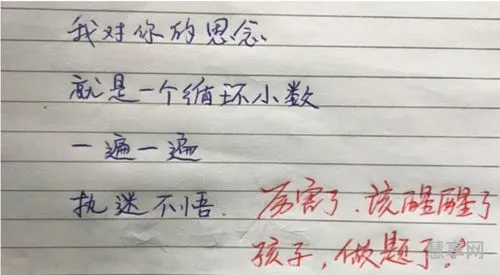 我对你的思念
就是一个循环小数
一遍一遍
执迷不悟. 厉害了.该醒醒了
孩子,做题了。
慧享网